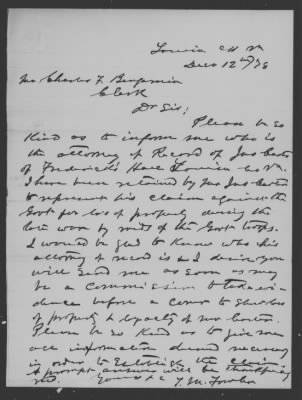 Louisa C H Va
Decr 12th/78
Mr Charles F. Benjamin
Clerk
Dr Sir;
Please be so
Kind as to inform me who is
the attorney of Record of Jas
of Frederick's Hall Louisa Co Va.
I have been retained by Mr Jas
to represent his claim against the
Govt for loss of property during the
late war by raids of the Govt troops.
I would be glad to Know who his
attorney of record is & I desire you
will send me as soon as may
be a Commission to take evi-
dence before a Comr to
of property & loyalty of Mr
Please be so Kind as to give me
all information deemed necessary
in order to Establish the claim
A prompt answer will be thankfully
recd. Yours &c